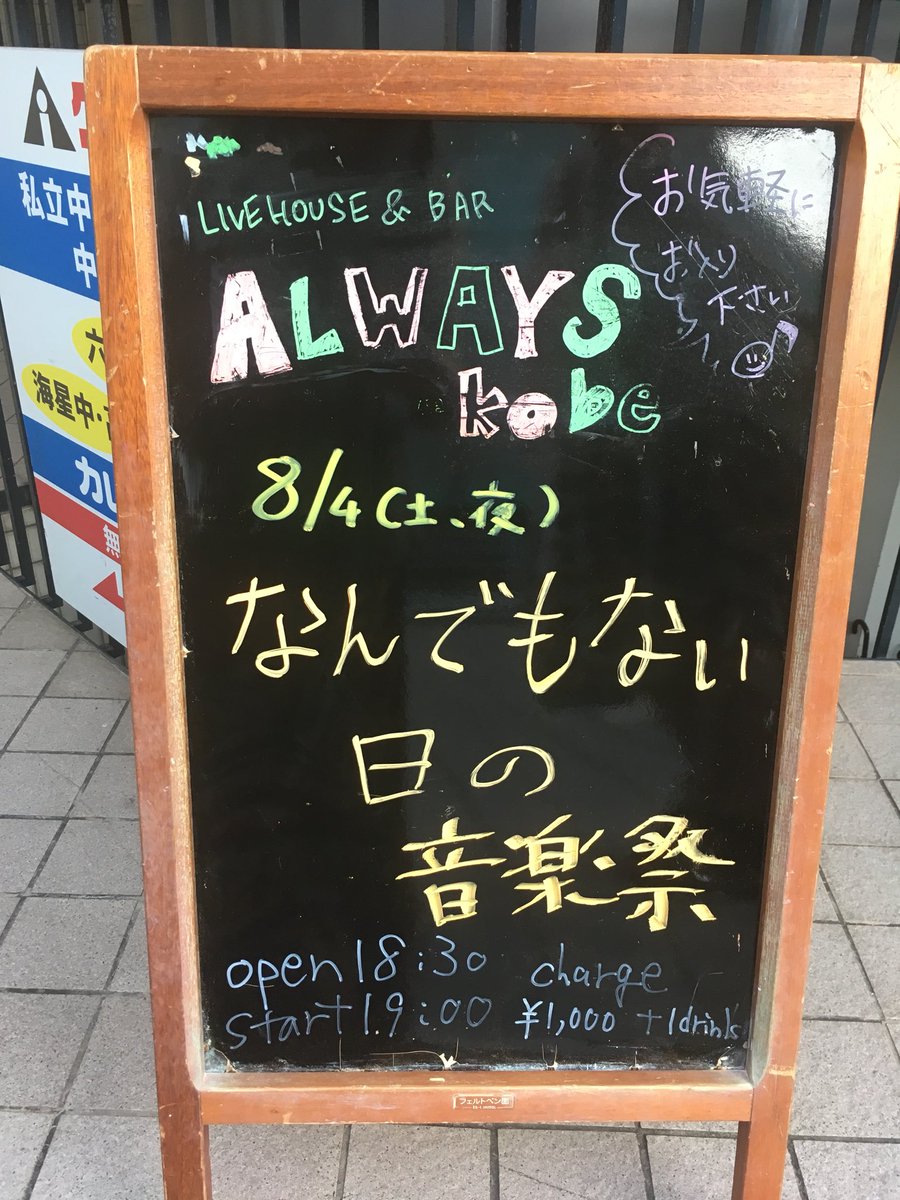 LIVEHOUSE & BAR
お気軽に
お入り
下さい
ALWAYS
kobe
8/4(土、夜)
なんでもない
日の
音楽祭
open 18:30
start 19:00
charge
¥1,000 +1drink
フェルトペン用
私立中
中
六
海星中・
カレ
無